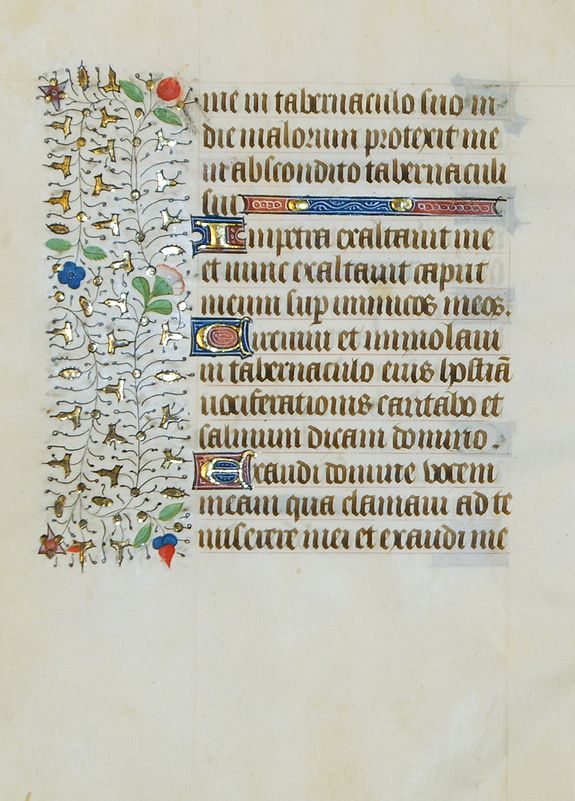 me in tabernaculo suo in
die malorum protexit me
in abscondito tabernaculi
sui
In petra exaltauit me
et nunc exaltauit caput
meum suꝑ inimicos meos.
Circuiui et immolaui
in tabernaculo eius hostiā
uociferationis cantabo et
salmum dicam domino.
Exaudi domine vocem
meam qua clamaui ad te
miserere mei et exaudi me